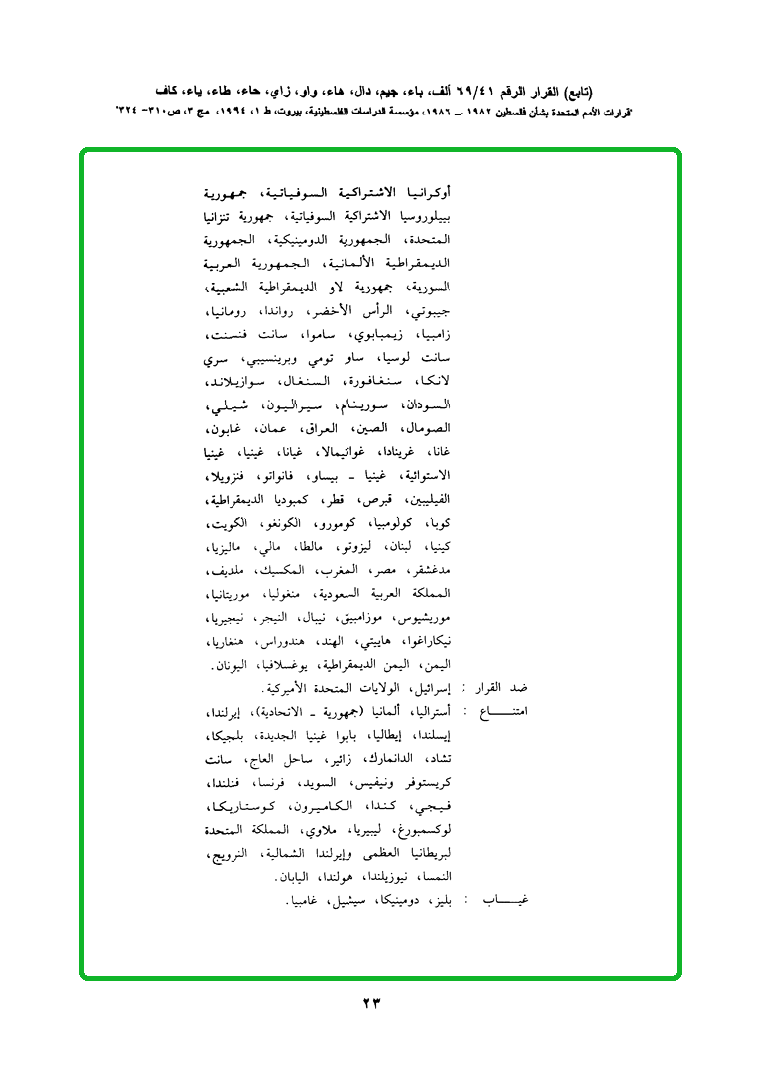 (تابع) القرار الرقم ٦٩/٤١ ألف، باء، جيم، دال، هاء، واو، زاي، حاء، طاء، ياء، كاف
"قرارات الأمم المتحدة بشأن فلسطين ١٩٨٢ ــ ١٩٨٦، مؤسسة الدراسات الفلسطينية، بيروت، ط ١، ١٩٩٤، مج ٣، ص٣١٠– ٣٢٤"
أوكرانيا الاشتراكية السوفياتية، جمهورية
بييلوروسيا الاشتراكية السوفياتية، جمهورية تنزانيا
المتحدة، الجمهورية الدومينيكية، الجمهورية
الديمقراطية الألمانية، الجمهورية العربية
السورية، جمهورية لاو الديمقراطية الشعبية،
جيبوتي، الرأس الأخضر، رواندا، رومانيا،
زامبيا، زيمبابوي، ساموا، سانت فنسنت،
سانت لوسيا، ساو تومي وبرينسيبي، سري
لانكا، سنغافورة، السنغال، سوازيلاند،
السودان، سورينام، سيراليون، شيلي،
الصومال، الصين، العراق، عمان، غابون،
غانا، غرينادا، غواتيمالا، غيانا، غينيا، غينيا
الاستوائية، غينيا ـ بيساو، فانواتو، فنزويلا،
الفيليبين، قبرص، قطر، كمبوديا الديمقراطية،
كوبا، كولومبيا، كومورو، الكونغو، الكويت،
كينيا، لبنان، ليزوتو، مالطا، مالي، ماليزيا،
مدغشقر، مصر، المغرب، المكسيك، ملديف،
المملكة العربية السعودية، منغوليا، موريتانيا،
موريشيوس، موزامبيق، نيبال، النيجر، نيجيريا،
نيكاراغوا، هاييتي، الهند، هندوراس، هنغاريا،
اليمن، اليمن الديمقراطية، يوغسلافيا، اليونان.
ضد القرار : إسرائيل، الولايات المتحدة الأميركية.
امتنـــاع : أستراليا، ألمانيا (جمهورية ـ الاتحادية)، إيرلندا،
إيسلندا، إيطاليا، بابوا غينيا الجديدة، بلجيكا،
تشاد، الدانمارك، زائير، ساحل العاج، سانت
كريستوفر ونيفيس، السويد، فرنسا، فنلندا،
فيجي، كندا، الكاميرون، كوستاريكا،
لوكسمبورغ، ليبيريا، ملاوي، المملكة المتحدة
لبريطانيا العظمى وإيرلندا الشمالية، النرويج،
النمسا، نيوزيلندا، هولندا، اليابان.
غيـــاب : بليز، دومينيكا، سيشيل، غامبيا.
٢٣